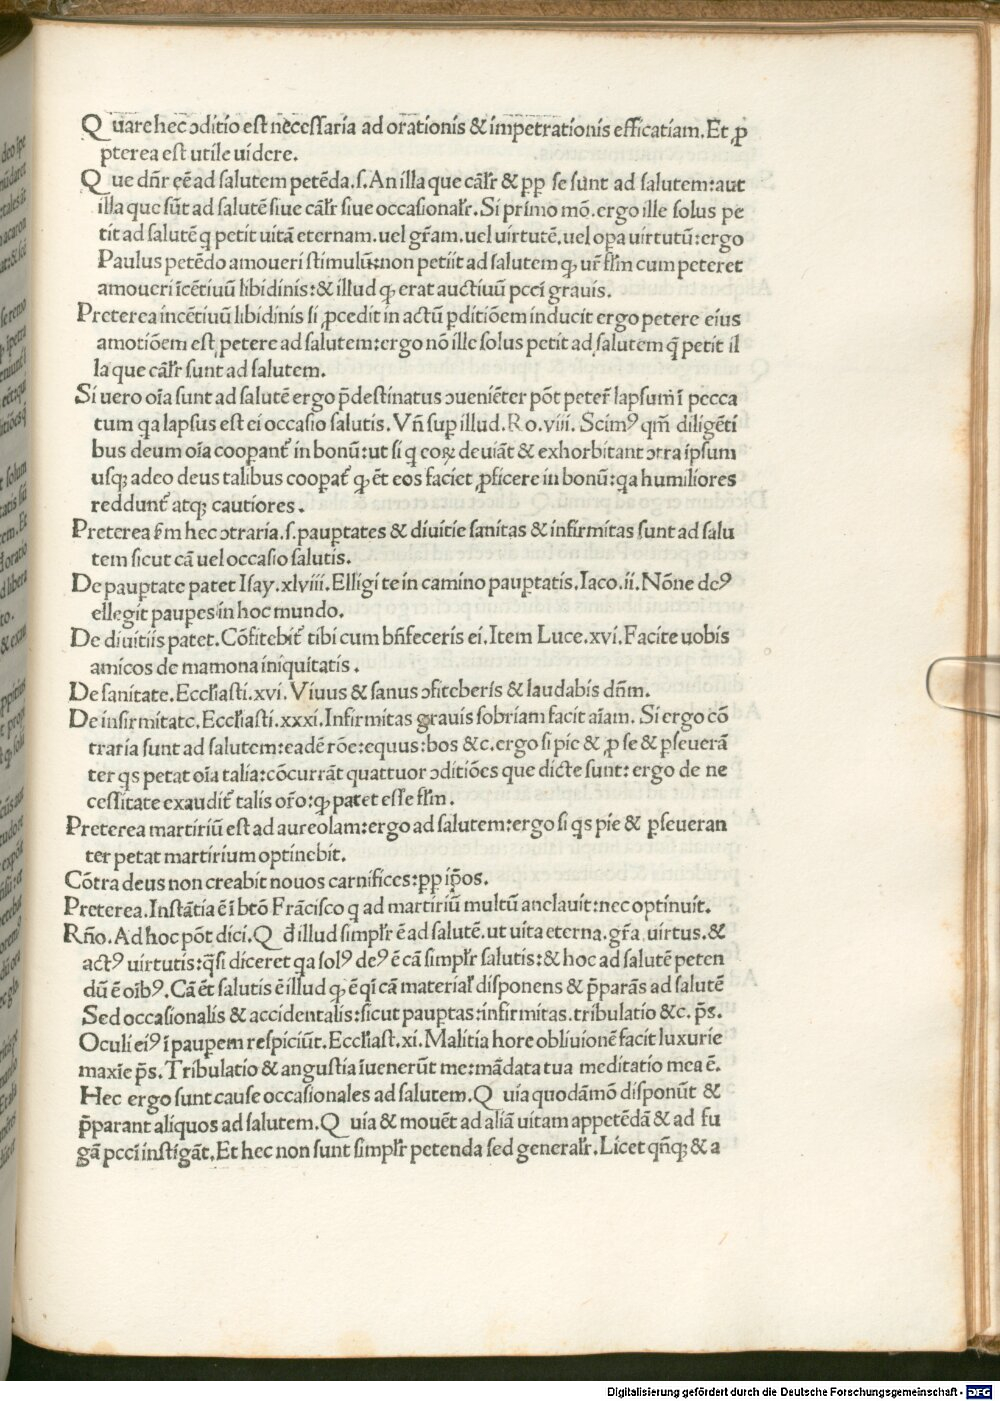 Q uare hec ↄditio est necessaria ad orationis & impetrationis efficatiam. Et ꝓ
pterea est utile uidere.
Q ue dn̄r eē ad salutem petēda. s. An illa que cāl̄r & ꝑp se sunt ad salutem: aut
illa que sūt ad salutē siue cāl̄r siue occasional̄r. Si primo mō. ergo ille solus pe
tit ad salutē q petit uitā eternam. uel gr̄am. uel uirtutē. uel opa uirtutū: ergo
Paulus petēdo amoueri stimulū: non petiit ad salutem ꝙ ur̄ fl̄m cum peteret
amoueri īcētiuū libidinis: & illud ꝙ erat auctiuū pccī grauis.
Preterea incētiuū libidinis si ꝓcedit in actū ꝑditiōem inducit ergo petere eius
amotiōem est petere ad salutem: ergo nō ille solus petit ad salutem q̄ petit il
la que cāl̄r sunt ad salutem.
Si uero oīa sunt ad salutē ergo p̄destinatus ↄueniēter pōt peter̄ lapsum ī pecca
tum qa lapsus est ei occasio salutis. Vn̄ suꝑ illud. Ro. viii. Scimꝰ qm̄ diligēti
bus deum oīa cooꝑant̄ in bonū: ut si q coꝝ deuiāt & exhorbitant ↄtra ipsum
usqꝫ adeo deus talibus cooꝑat̄ ꝙ ēt eos faciet ꝓficere in bonū: qa humiliores
reddunt̄ atqꝫ cautiores.
Preterea s̄m hec ↄtraria. s. pauꝑtates & diuitie sanitas & infirmitas sunt ad salu
tem sicut cā uel occasio salutis.
De pauꝑtate patet Isay. xlviii. Elligi te in camino pauꝑtatis. Iaco. ii. Nōne deꝰ
ellegit pauꝑes in hoc mundo.
De diuitiis patet. Cōfitebit̄ tibi cum bn̄feceris ei. Item Luce. xvi. Facite uobis
amicos de mamona iniquitatis.
De sanitate. Eccl̄iasti. xvi. Viuus & sanus ↄfiteberis & laudabis dn̄m.
De infirmitate. Eccl̄iasti. xxxi. Infirmitas grauis sobriam facit aīam. Si ergo cō
traria sunt ad salutem: eadē rōe: equus: bos &c. ergo si pie & ꝓ se & ꝑseuerā
ter qs petat oīa talia: cōcurrāt quattuor ↄditiōes que dicte sunt: ergo de ne
cessitate exaudit̄ talis or̄o: ꝙ patet esse fl̄m.
Preterea martiriū est ad aureolam: ergo ad salutem: ergo si qs pie & ꝑseueran
ter petat martirium optinebit.
Cōtra deus non creabit nouos carnifices: ꝓp ip̄os.
Preterea. Instātia ē ī btō Frācisco q ad martiriū multū anclauit: nec optinuit.
Rn̄o. Ad hoc pōt dici. Q d̄ illud simpl̄r ē ad salutē. ut uita eterna. gr̄a uirtus. &
actꝰ uirtutis: q̄si diceret qa solꝰ deꝰ ē cā simpl̄r salutis: & hoc ad salutē peten
dū ē oībꝰ. Cā ēt salutis ē illud ꝙ ē qī cā material̄ disponens & p̄parās ad salutē
Sed occasionalis & accidentalis: sicut pauꝑtas: infirmitas. tribulatio &c. p̄s.
Oculi eiꝰ ī pauꝑem respiciūt. Eccl̄iast. xi. Malitia hore obliuionē facit luxurie
maxīe p̄s. Tribulatio & angustia īuenerūt me: mādata tua meditatio mea ē.
Hec ergo sunt cause occasionales ad salutem. Q uia quodāmō disponūt &
p̄parant aliquos ad salutem. Q uia & mouēt ad aliā uitam appetēdā & ad fu
gā pccī instigāt. Et hec non sunt simpl̄r petenda sed general̄r. Licet qn̄qꝫ & a
Digitalisierung gefördert durch die Deutsche Forschungsgemeinschaft - DFG